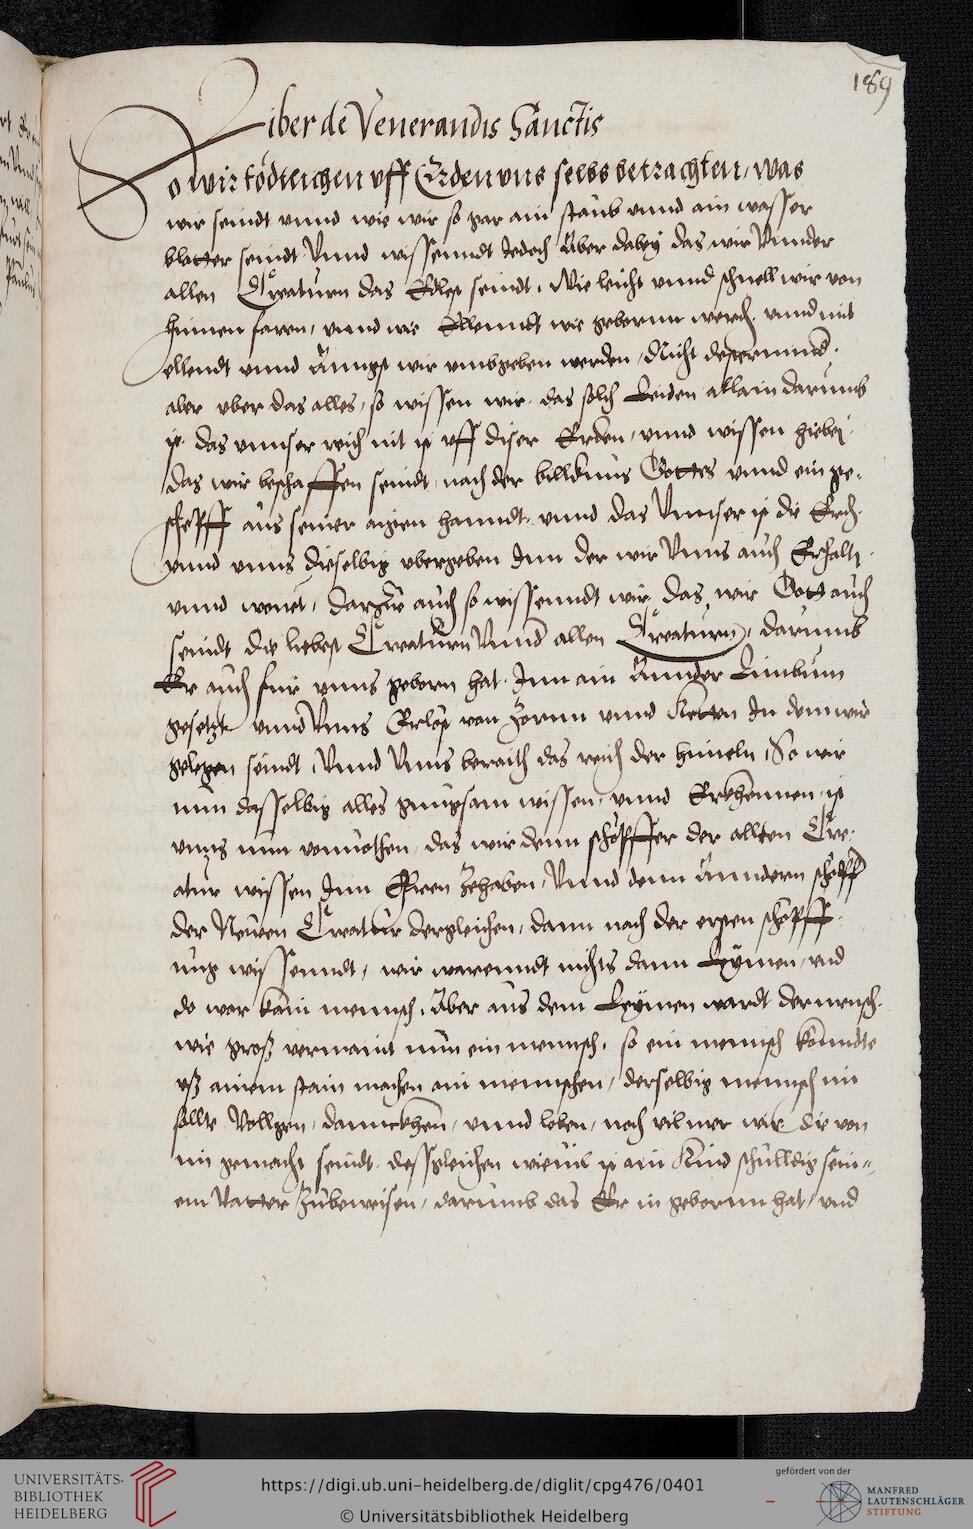 189
Liber de Venerandis Sanctis
So wir tödtlichen uff Erden uns selbs betrachten, was
wir seindt unnd wie wir so gar ain staub unnd ain wasser
blatter seindt Unnd wissenndt Jedoch Aber dabey das wir Unnder
allen Creaturn das Edlest seindt, Wie leicht unnd schnell wir von
hinnen faren, unnd wie Ellenndt wir gebornn werden unnd mit
ellendt unnd Änngst wir umbgeben werden, Nicht
aber uber das alles, so wissen wir das solch Leiden allain darumb
ist das unnser reich nit ist uff diser Erden, unnd wissen hiebei
das wir beschaffen seindt, nach der billdtnus Gottes unnd ein ge-
schepff aus seiner aigen hanndt, unnd das Unnser ist die Erdt
unnd unns dieselbig ubergeben Jnn der wir Unns auch Erhalten
unnd wonet, Darzue auch so wissenndt wir, Das wir Gott auch
seindt die liebest Creaturn Unnd allen Creaturn, darumb
Er auch fur unns geborn hat Jnn ain Annder Limbum
gesetzt unnd Unns Erlöst von Zornn unnd Ketten Jn dem wir
gelegen seindt, Unnd Unns beraith das reich der himeln, So wir
nun dasselbig alles gnugsam wissen, unnd Erkhennen, ist
unns nun vonnöthen, das wir denn schöpffer der allten Cre-
atur wissen Jnn Eeren Zehaben, Unnd denn Änndern schöpff
der Neüen Creatur dergleichen, dann nach der ersten schöpff
ung wissenndt, wir warenndt nichts dann Leymen, und
do war kain mennsch, Aber aus dem Leymen wardt der mensch
wie groß vermaint nun ein mennsch, so ein mennsch könndte
uß ainem stain machen ain mennschen, derselbig mennsch im
sollte Vollgen, dannckhen, unnd loben, noch vil mer wir die von
im gemacht seindt, dessgleichen wievil ist ain Kind schuldig sein-
em Vatter Zubeweisen, darumb das Er in geborn hat, und
UNIVERSITÄTS-
BIBLIOTHEK
HEIDELBERG
https://digi.ub.uni-heidelberg.de/diglit/cpg476/0401
© Universitätsbibliothek Heidelberg
gefördert von der
MANFRED
LAUTENSCHLÄGER
STIFTUNG